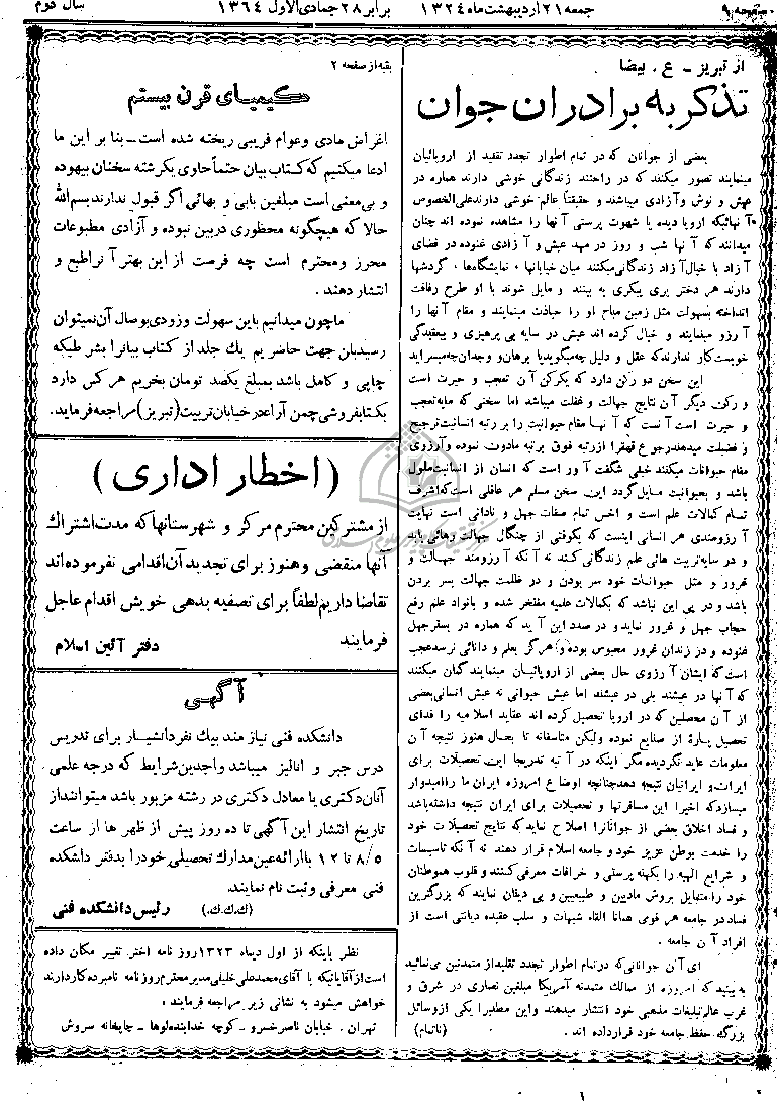 صفحه ۹
جمعه ۲۱ اردیبهشت ماه ۱۳۲۴
برابر ۲۸ جمادی الاول ۱۳۶۴
سال دوم
از تبریز - ع . بیضا
تذکر به برادران جوان
بعضی از جوانان که در تمام اطوار تجدد تقلید از اروپائیان
مینمایند تصور میکنند که در راحتند زندگانی خوشی دارند همواره در
عیش و نوش و آزادی میباشند و حقیقتاً عالم خوشی دارند علی الخصوص
آنهائیکه اروپا دیده یا شهوت پرستی آنها را مشاهده نموده اند چنان
میدانند که آنها شب و روز در مهد عیش و آزادی غنوده در فضای
آزاد با خیال آزاد زندگانی میکنند میان خیابانها ، نمایشگاهها ، گردشها
دارند هر دختر پری پیکری به بینند و مایل شوند با او طرح رفاقت
انداخته بسهولت مثل زمین مباح او را حیازت مینمایند و مقام آنها را
آرزو مینمایند و خیال کرده اند عیش در سایه بی پرهیزی و بیعقیدگی
خوبست کار ندارند که عقل و دلیل چه میگوید یا برهان و وجدان چه میسراید
این سخن دو رکن دارد که یکرکن آن تعجب و حیرت است
و رکن دیگر آن نتایج جهالت و غفلت میباشد اما سخنی که مایه تعجب
و حیرت است آنست که آنها مقام حیوانیت را بر رتبه انسانیت ترجیح
و فضیلت میدهند رجوع قهقرا از رتبه فوق برتبه مادون نموده و آرزوی
مقام حیوانات میکنند خیلی شگفت آور است که انسان از انسانیت ملول
باشد و بحیوانیت مایل گردد این سخن مسلم هر عاقلی است که اشرف
تمام کمالات علم است و اخس تمام صفات جهل و نادانی است نهایت
آرزومندی هر انسانی اینست که یکوقتی از چنگال جهالت رهائی یابد
و در سایه تربیت های علم زندگانی کند نه آنکه آرزومند جهالت و
غرور و مثل حیوانات خود سر بودن و در ظلمت جهالت بسر بردن
باشد و در پی این نباشد که بکمالات علمیه مفتخر شده و بانواد علم رفع
حجاب جهل و غرور نماید و در صدد این آید که همواره در بستر جهل
غنوده و در زندان غرور محبوس بوده و هرگز بعلم و دانائی نرسد عجب
است که ایشان آرزوی حال بعضی از اروپائیان مینمایند گمان میکنند
که آنها در عیشند بلی در عیشند اما عیش حیوانی نه عیش انسانی بعضی
از آن محصلین که در اروپا تحصیل کرده اند عقاید اسلامیه را فدای
تحصیل پارهٔ از صنایع نموده ولیکن متاسفانه تا بحال هنوز نتیجه آن
معلومات عاید نگردیده مگر اینکه در آتیه تدریجا این تحصیلات برای
ایران و ایرانیان نتیجه دهد چنانچه اوضاع امروزه ایران ما را امیدوار
میسازد که اخیرا این مسافرتها و تحصیلات برای ایران نتیجه داشته باشد
و فساد اخلاق بعضی از جوانانرا اصلاح نماید که نتایج تحصیلات خود
را خدمت بوطن عزیز خود و جامعه اسلام قرار دهند نه آنکه تاسیسات
و شرایع الهیه را بکهنه پرستی و خرافات معرفی کنند و قلوب هموطنان
خود را متمایل بروش مادیین و طبیعیین و بی دینان نمایند که بزرگترین
فساد در جامعه هر قومی همانا القاء شبهات و سلب عقیده دیانتی است از
افراد آن جامعه .
ای آن جوانانی که در تمام اطوار تجدد تقلید از متمدنین می نمائید
به بینید که امروزه از ممالک متمدنه آمریکا مبلغین نصاری در شرق و
غرب عالم تبلیغات مذهبی خود انتشار میدهند و این مطلب را یکی از وسائل
بزرگ حفظ جامعه خود قرار داده اند . (ناتمام)
بقیه از صفحه ۲
کیمیای قرن بیستم
اغراض مادی و عوام فریبی ریخته شده است - بنا بر این ما
ادعا میکنیم که کتاب بیان حتماً حاوی یکرشته سخنان بیهوده
و بی معنی است مبلغین بابی و بهائی اگر قبول ندارند بسم الله
حالا که هیچگونه محظوری در بین نبوده و آزادی مطبوعات
محرز و محترم است چه فرصت از این بهتر آنرا طبع و
انتشار دهند .
ما چون میدانیم باین سهولت و زودی بوصال آن نمیتوان
رسید بان جهت حاضریم یک جلد از کتاب بیانرا بشرطیکه
چاپی و کامل باشد بمبلغ یکصد تومان بخریم هر کس دارد
بکتابفروشی چمن آرا در خیابان تربیت (تبریز) مراجعه فرماید.
( اخطار اداری )
از مشترکین محترم مرکز و شهرستانها که مدت اشتراک
آنها منقضی و هنوز برای تجدید آن اقدامی نفرموده اند
تقاضا داریم لطفاً برای تصفیه بدهی خویش اقدام عاجل
فرمایند
دفتر آئین اسلام
آگهی
دانشکده فنی نیازمند بیک نفر دانشیار برای تدریس
درس جبر و انالیز میباشد واجدین شرایط که درجه علمی
آنان دکتری یا معادل دکتری در رشته مزبور باشد میتوانند از
تاریخ انتشار این آگهی تا ده روز پیش از ظهر ها از ساعت
۸/۵ تا ۱۲ با ارائه عین مدارک تحصیلی خود را بدفتر دانشکده
فنی معرفی و ثبت نام نمایند.
(ک.ک.ک) رئیس دانشکده فنی
نظر باینکه از اول دیماه ۱۳۲۳ روز نامه اختر تغییر مکان داده
است از آقایانیکه با آقای محمد علی خلیلی مدیر محترم روز نامه نامبرده کار دارند
خواهش میشود به نشانی زیر مراجعه فرمایند :
تهران ، خیابان ناصر خسرو - کوچه خدابنده لوها - چاپخانه سروش